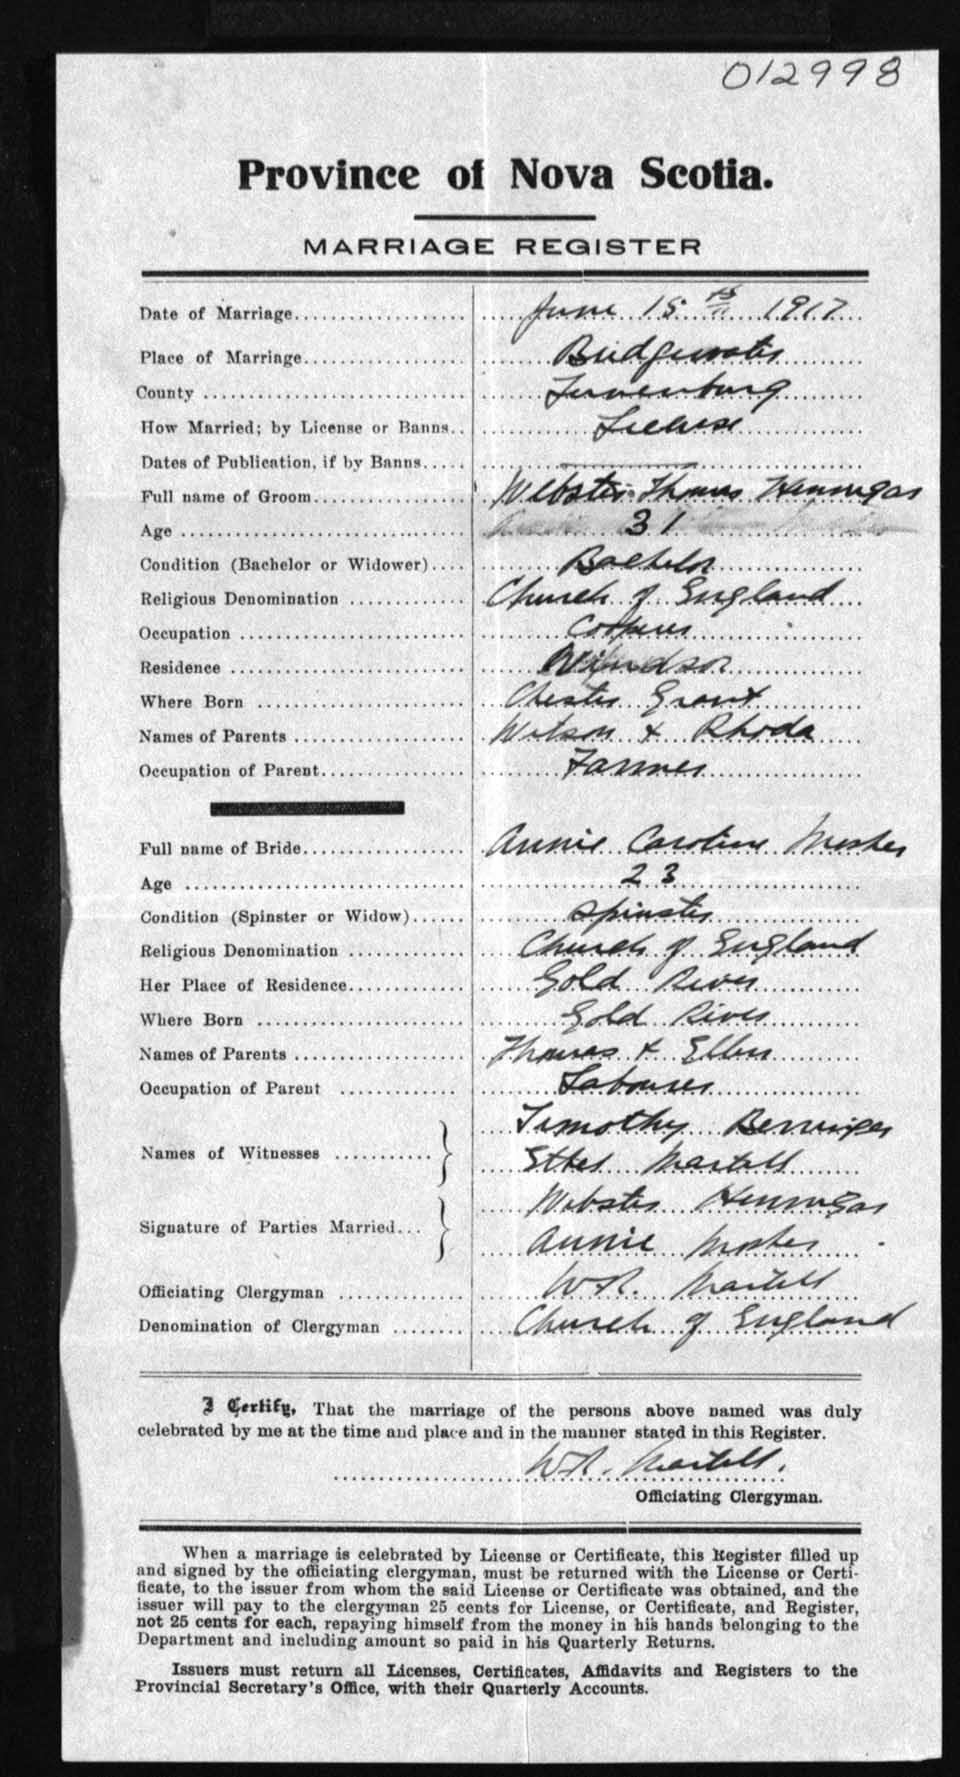 012998
Province of Nova Scotia.
MARRIAGE REGISTER
Date of Marriage.................... June 15 1917
Place of Marriage.................. Bridgewater
County ............................. Lunenburg
How Married; by License or Banns.. License
Dates of Publication, if by Banns.....
Full name of Groom................. Webster Thomas Hennigar
Age ............................... 31
Condition (Bachelor or Widower).... Bachelor
Religious Denomination ............. Church of England
Occupation ......................... Cooper
Residence .......................... Windsor
Where Born ....................... Chester Grant
Names of Parents ................... Watson & Rhoda
Occupation of Parent................ Farmer
Full name of Bride.................. Annie Caroline Mosher
Age ............................... 23
Condition (Spinster or Widow)...... Spinster
Religious Denomination ............. Church of England
Her Place of Residence............. Gold River
Where Born ....................... Gold River
Names of Parents ................... Thomas & Ellen
Occupation of Parent .............. Labourer
Names of Witnesses ........... } Timothy Hennigar
Ethel Martell
Signature of Parties Married... } Webster Hennigar
Annie Mosher
Officiating Clergyman .............. W R. Martell
Denomination of Clergyman ........ Church of England
I Certify, That the marriage of the persons above named was duly
celebrated by me at the time and place and in the manner stated in this Register.
W R. Martell.
Officiating Clergyman.
When a marriage is celebrated by License or Certificate, this Register filled up
and signed by the officiating clergyman, must be returned with the License or Certi-
ficate, to the issuer from whom the said License or Certificate was obtained, and the
issuer will pay to the clergyman 25 cents for License, or Certificate, and Register,
not 25 cents for each, repaying himself from the money in his hands belonging to the
Department and including amount so paid in his Quarterly Returns.
Issuers must return all Licenses, Certificates, Affidavits and Registers to the
Provincial Secretary's Office, with their Quarterly Accounts.